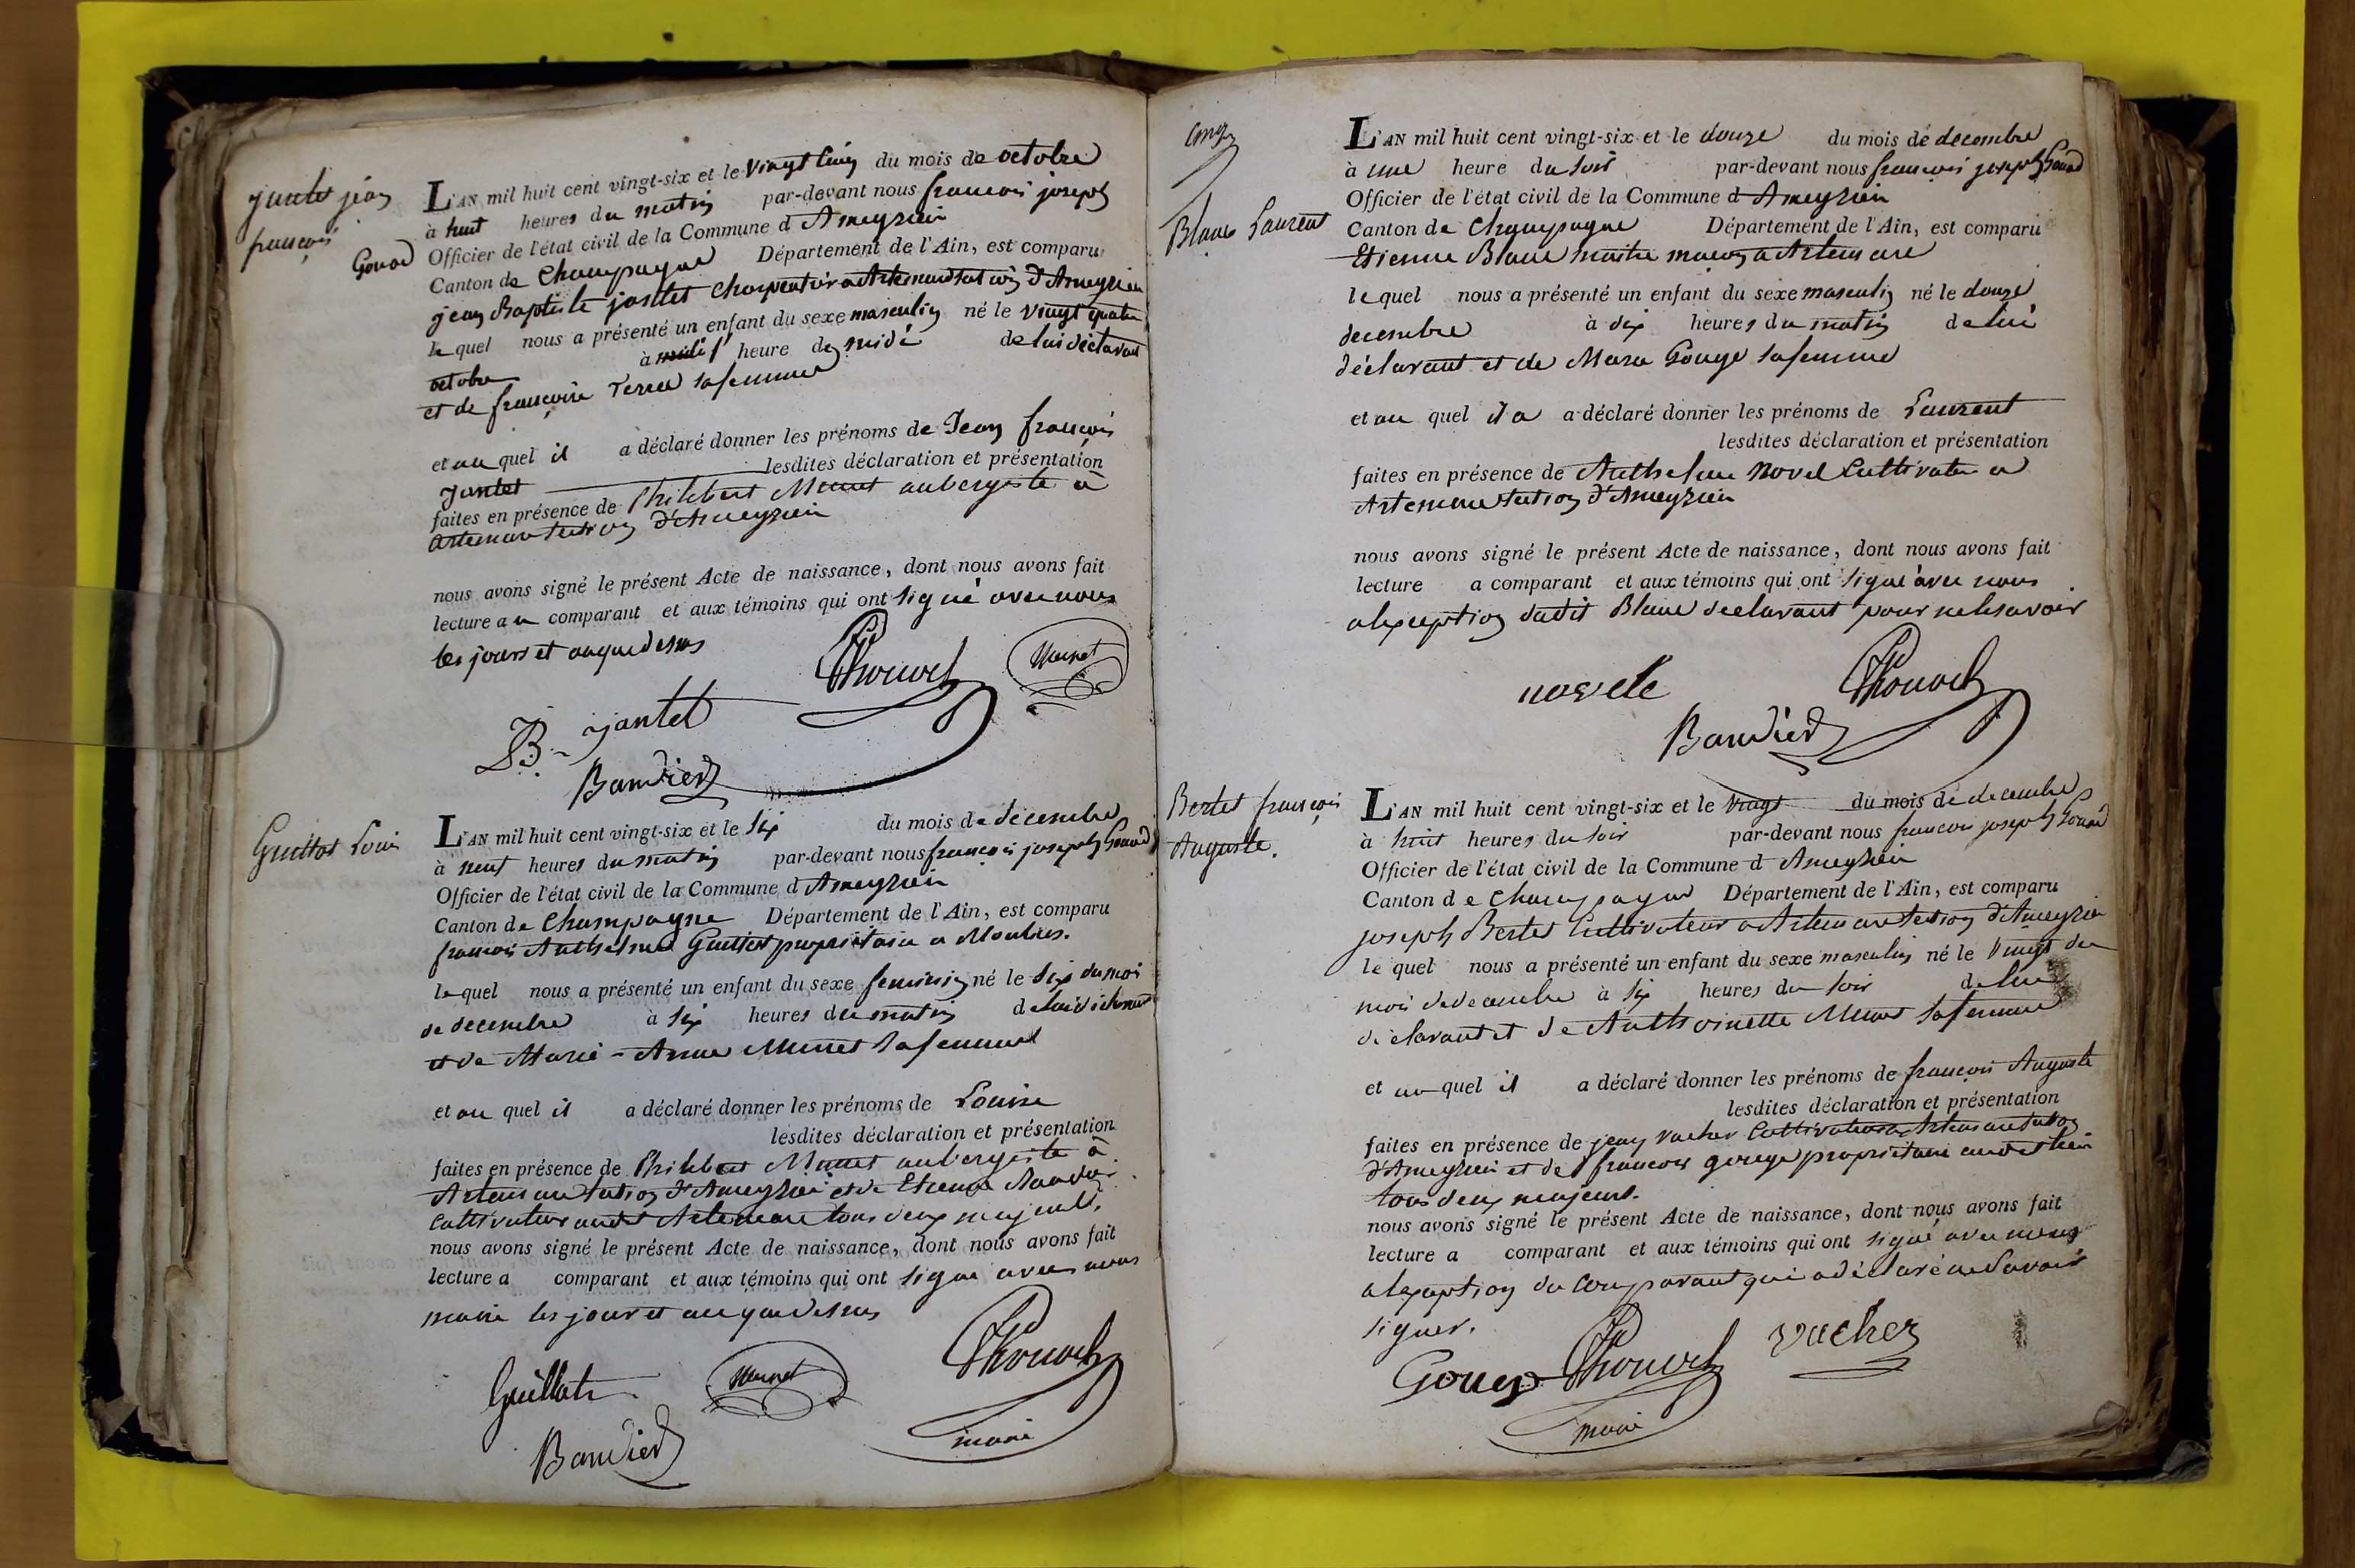 jantet jean
francois
L'AN mil huit cent vingt-six et le vingt cinq du mois de octobre
à huit heures du matin par-devant nous francois joseph
Gouod Officier de l'état civil de la Commune d Ameyzieu
Canton de Champagne Département de l'Ain, est comparu
jean Baptiste jantet charpentier a Artemare section d'Ameyzieu
lequel nous a présenté un enfant du sexe masculin né le vingt quatre
octobre à heure de midi de lui déclarant
et de francoise sa femme
et au quel il a déclaré donner les prénoms de Jean francois
jantet lesdites déclaration et présentation
faites en présence de Philibert Munet aubergiste à
artemare section d'Ameyzieu
nous avons signé le présent Acte de naissance, dont nous avons fait
lecture au comparant et aux témoins qui ont signé avec nous
les jours et an que dessus
Munet
JB jantet
Baudier
Guillot Louise
L'AN mil huit cent vingt-six et le six du mois de decembre
à neuf heures du matin par-devant nous francois joseph Gouod
Officier de l'état civil de la Commune d Ameyzieu
Canton de Champagne Département de l'Ain, est comparu
francois Anthelme Guillot propriétaire a
lequel nous a présenté un enfant du sexe feminin né le six du mois
de decembre à six heures du matin de lui déclarant
et de Marie-Anne Munet sa femme
et au quel il a déclaré donner les prénoms de Louise
lesdites déclaration et présentation
faites en présence de Philibert Munet aubergiste à
Artemare section d'Ameyzieu et de Etienne Baudier
cultivateur audit Artemare tous deux majeurs.
nous avons signé le présent Acte de naissance, dont nous avons fait
lecture a comparant et aux témoins qui ont signé avec nous
maire les jour et an que dessus
Guillot
Munet
maire
Baudier
Blanc Laurent
L'AN mil huit cent vingt-six et le douze du mois de decembre
à une heure du soir par-devant nous francois joseph Gouod
Officier de l'état civil de la Commune d Ameyzieu
Canton de Champagne Département de l'Ain, est comparu
Etienne Blanc maitre maçon a Artemare
lequel nous a présenté un enfant du sexe masculin né le douze
decembre à dix heures du matin de lui
déclarant et de Marie Gouge sa femme
et au quel il a a déclaré donner les prénoms de Laurent
lesdites déclaration et présentation
faites en présence de Anthelme Novel cultivateur a
Artemare section d'Ameyzieu
nous avons signé le présent Acte de naissance, dont nous avons fait
lecture a comparant et aux témoins qui ont signé avec nous
a l'exception dudit Blanc declarant pour ne le savoir
Baudier
Bertet francois
Auguste.
L'AN mil huit cent vingt-six et le vingt du mois de decembre
à huit heures du soir par-devant nous francois joseph Gouod
Officier de l'état civil de la Commune d Ameyzieu
Canton de Champagne Département de l'Ain, est comparu
joseph Bertet cultivateur a Artemare section d'Ameyzieu
lequel nous a présenté un enfant du sexe masculin né le vingt du
mois de decembre à six heures du soir de lui
déclarant et de Anthoinette Munet sa femme
et au quel il a déclaré donner les prénoms de francois Auguste
lesdites déclaration et présentation
faites en présence de jean vacher cultivateur a Artemare section
d'Ameyzieu et de francois gouge propriétaire audit lieu
tous deux majeurs.
nous avons signé le présent Acte de naissance, dont nous avons fait
lecture a comparant et aux témoins qui ont signé avec nous
a l'exception du comparant qui a déclaré ne savoir
signer.
vacher
Gouge
maire